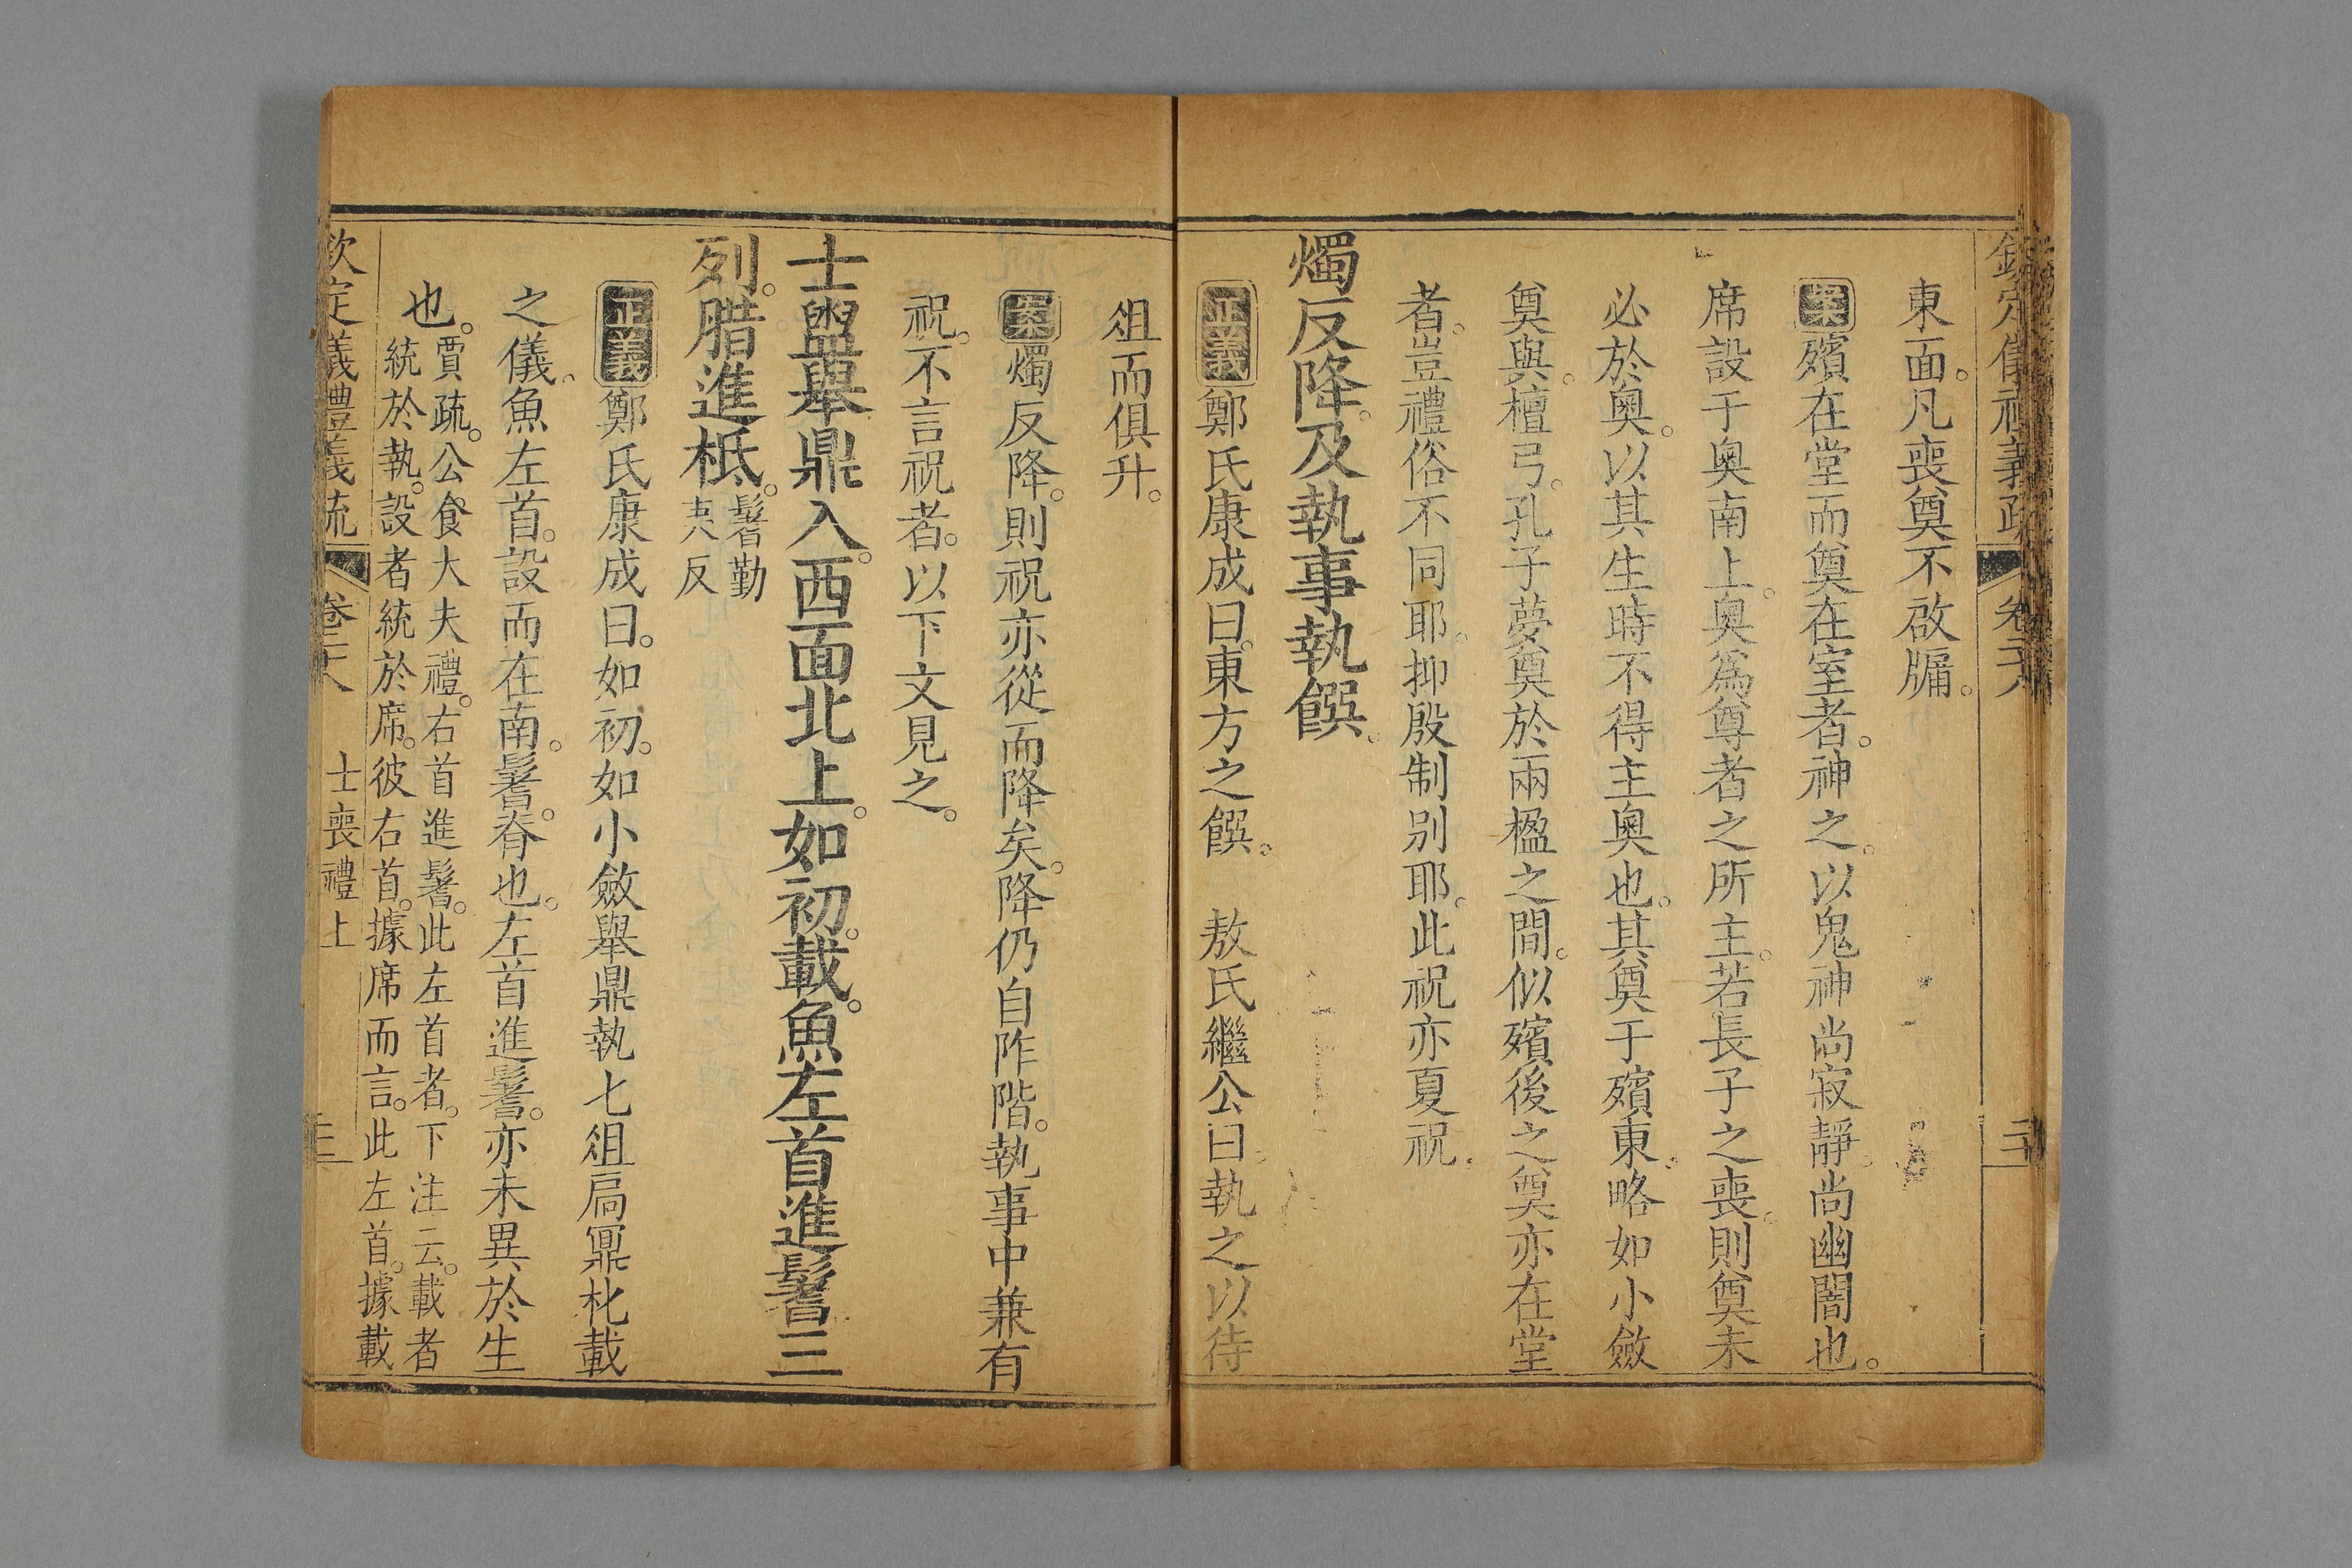 欽定儀禮義疏 卷二十八 三十
東面。凡喪奠不啟牖。
案殯在堂而奠在室者。神之。以鬼神尚寂靜。尚幽闇也。
席設于奧南上。奧爲尊者之所主。若長子之喪。則奠未
必於奧。以其生時不得主奧也。其奠于殯東。略如小斂
奠與。檀弓。孔子夢奠於兩楹之間。似殯後之奠亦在堂
者。豈禮俗不同耶。抑殷制別耶。此祝亦夏祝。
燭反降。及執事執饌。
正義鄭氏康成曰。東方之饌。 敖氏繼公曰。執之以待
俎而俱升。
案燭反降。則祝亦從而降矣。降仍自阼階。執事中兼有
祝。不言祝者。以下文見之。
士盥舉鼎入。西面北上。如初。載。魚左首進鬐三
列。腊進柢。鬐勤
夷反
正義鄭氏康成曰。如初。如小斂舉鼎執匕俎扃鼏朼載
之儀。魚左首。設而在南。鬐。脊也。左首進鬐。亦未異於生
也。賈疏。公食大夫禮。右首進鬐。此左首者。下注云。載者
統於執。設者統於席。彼右首。據席而言。此左首。據載
欽定儀禮義疏 卷二十八 士喪禮上